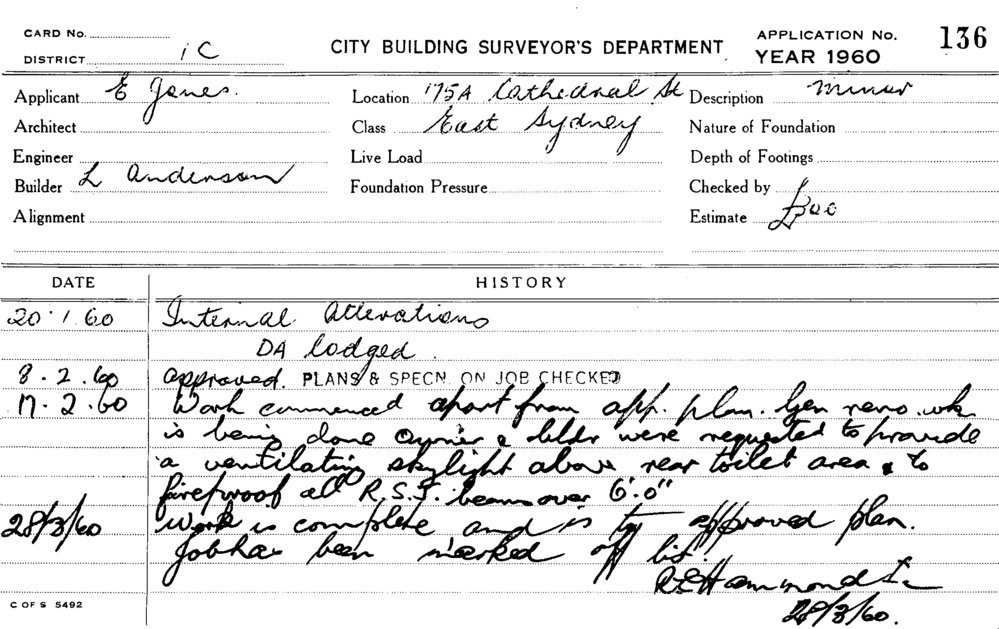 CARD No.
DISTRICT 1C
CITY BUILDING SURVEYOR'S DEPARTMENT
APPLICATION No. 136
YEAR 1960
Applicant E Jones. Location 175A Cathedral St Description Minor
Architect Class East Sydney Nature of Foundation
Engineer Live Load Depth of Footings
Builder L Anderson Foundation Pressure Checked by
Alignment Estimate £300
DATE HISTORY
20.1.60 Internal Alterations
DA lodged.
8.2.60 approved. PLANS & SPECN. ON JOB CHECKED
17.2.60 Work commenced apart from app. plan. Gen reno. wk
is being done Owner & bldr were requested to provide
a ventilating skylight above rear toilet area & to
fireproof all R.S.J. beams over 6'.0"
28/3/60 Work is complete and is to approved plan.
Job has been marked off list.
Hammond
28/3/60.
C OF S 5492